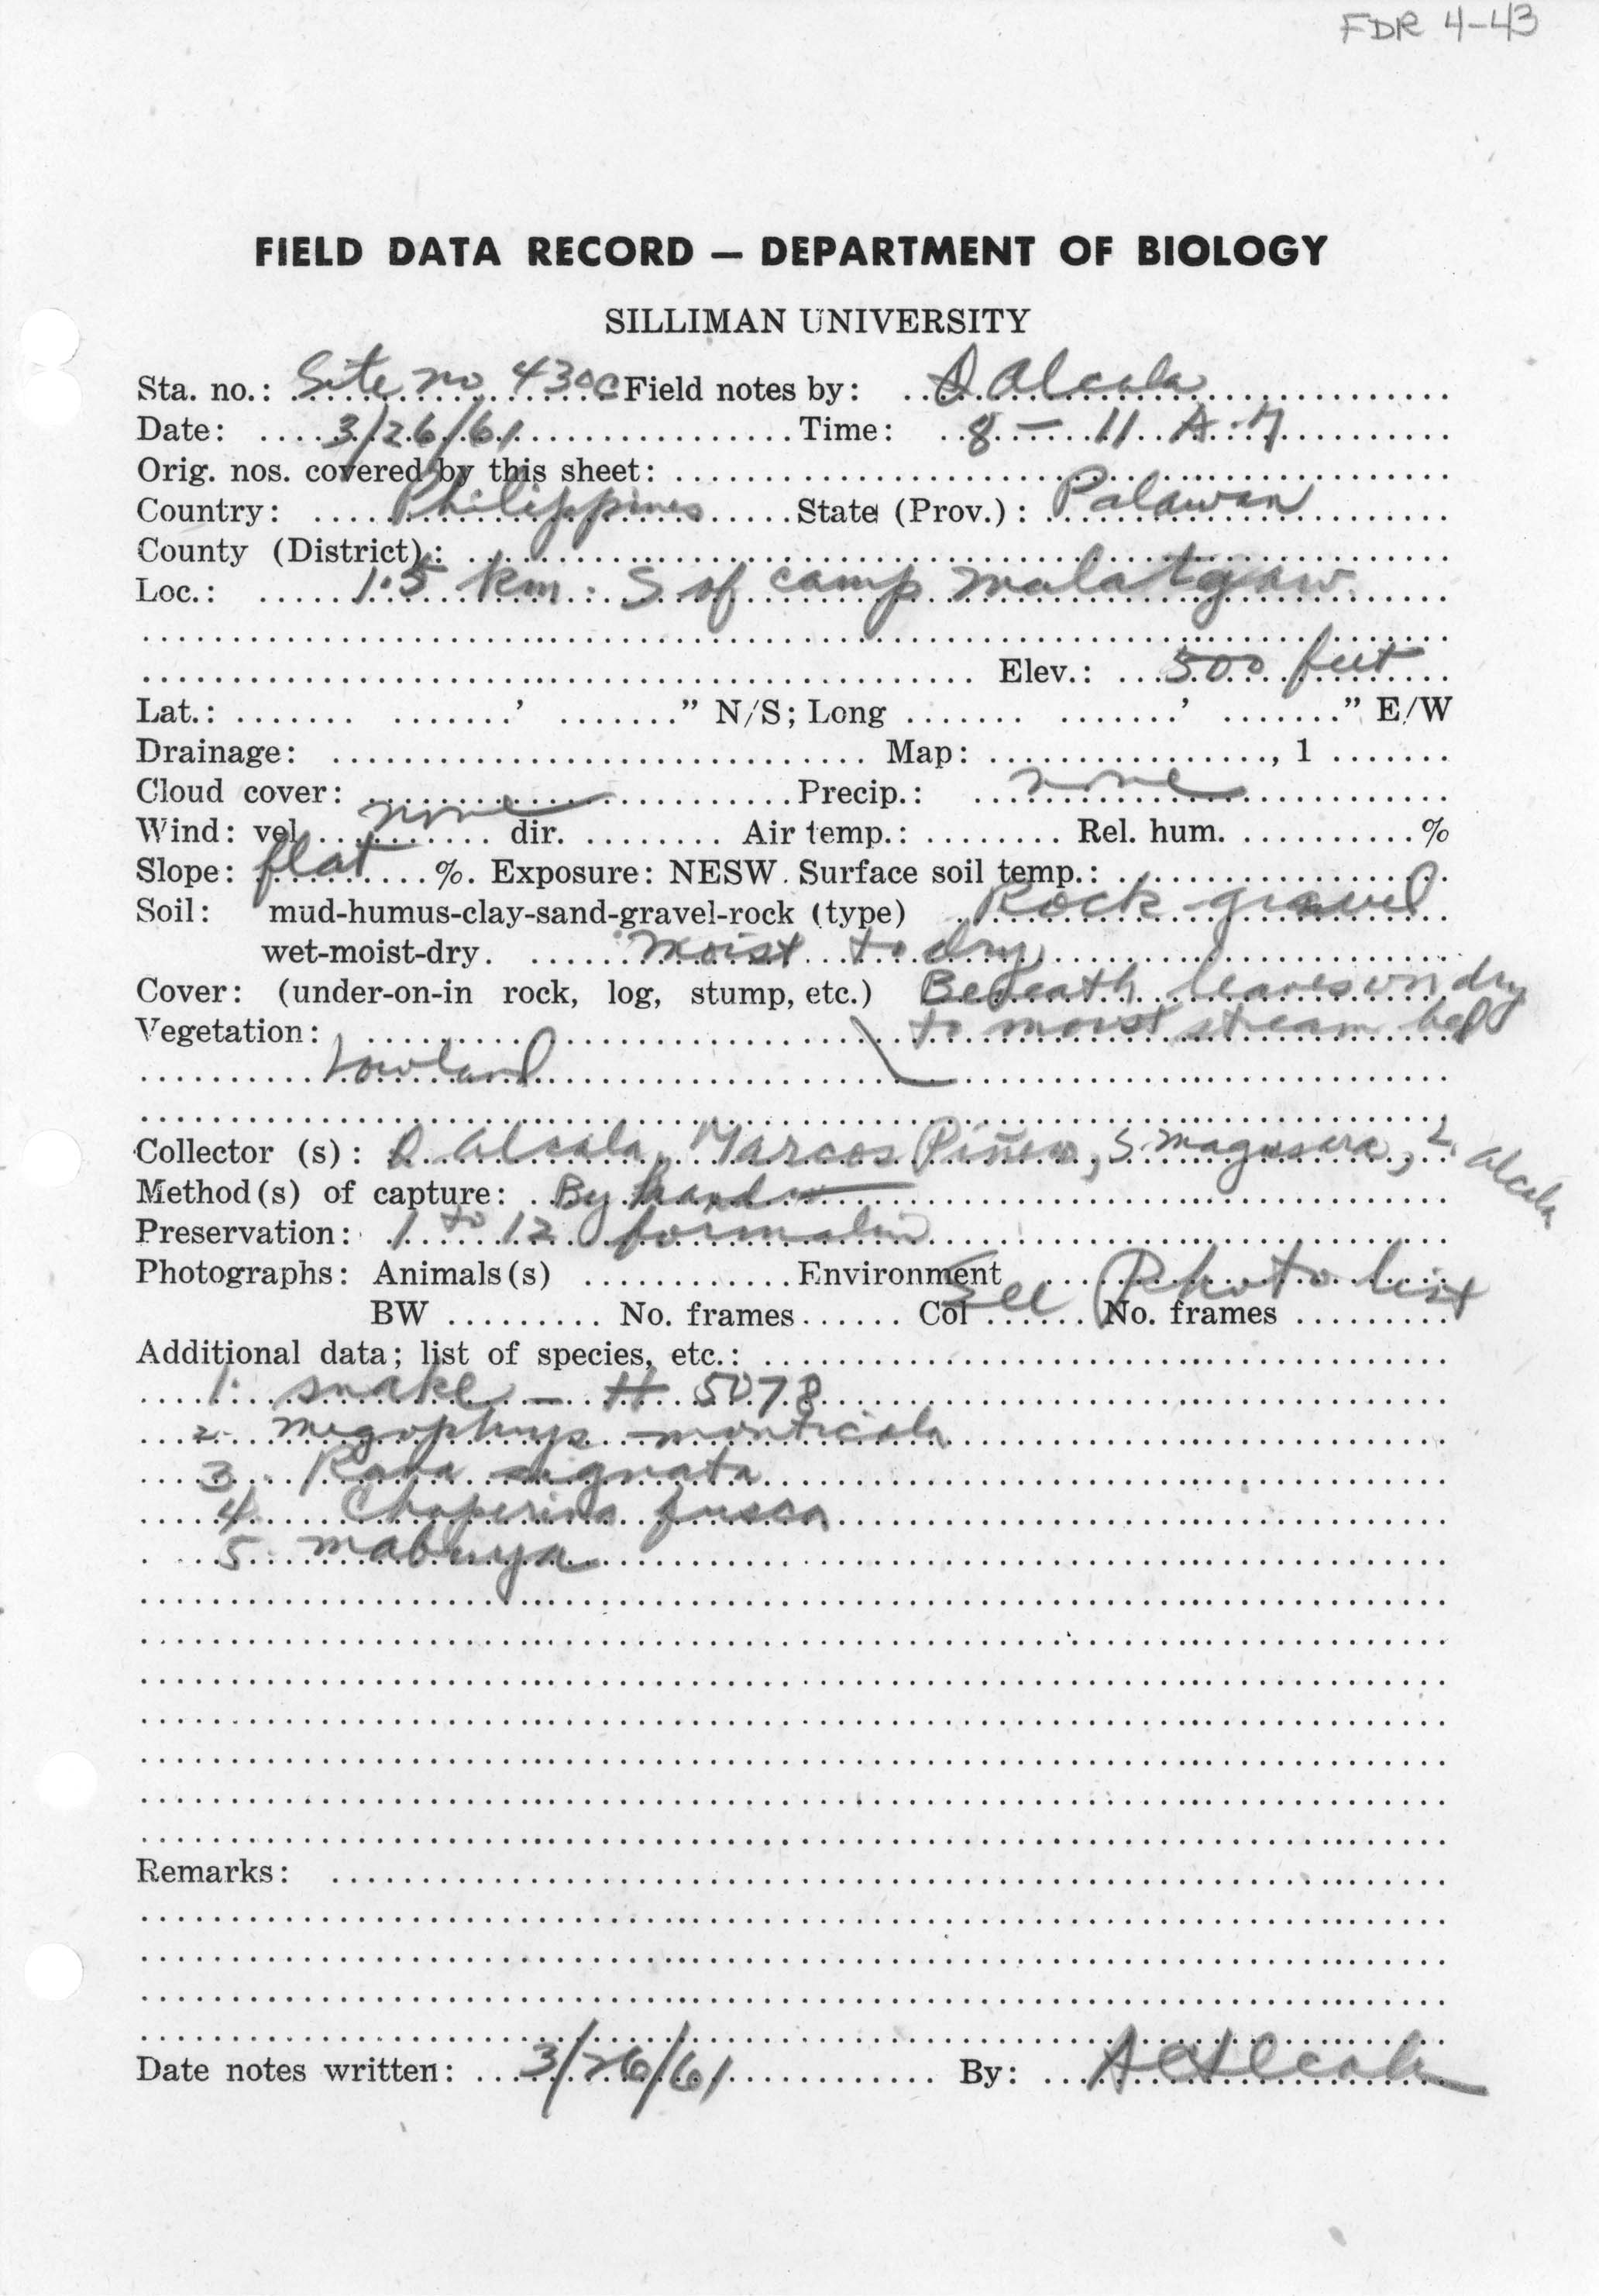 FDR 4-43
FIELD DATA RECORD — DEPARTMENT OF BIOLOGY
SILLIMAN UNIVERSITY
Sta. no.: Site no 430c Field notes by: A Alcala
Date: 3/26/61 Time: 8 – 11 A.M
Orig. nos. covered by this sheet:
Country: Philippines State (Prov.): Palawan
County (District):
Loc.: 1.5 km. S of camp malatgaw.
Elev.: 500 feet
Lat.: ' " N/S; Long ' " E/W
Drainage: Map: , 1
Cloud cover: none Precip.: none
Wind: vel. dir. Air temp.: Rel. hum. %
Slope: flat %. Exposure: NESW. Surface soil temp.:
Soil: mud-humus-clay-sand-gravel-rock (type) Rock gravel
wet-moist-dry. moist to dry
Cover: (under-on-in rock, log, stump, etc.) Beneath leaves on dry
Vegetation: to moist stream bed
Lowland
Collector (s): A. Alcala, Marcos Piñero, S. Magusara, L. Alcala
Method(s) of capture: By hand
Preservation: 1 to 12 formalin
Photographs: Animals(s) Environment See Photo list
BW No. frames Col No. frames
Additional data; list of species, etc.:
1. snake – # 5078
2. Megophrys monticola
3. Rana signata
4. Chaperina fusca
5. mabuya
Remarks:
Date notes written: 3/26/61 By: A Alcala